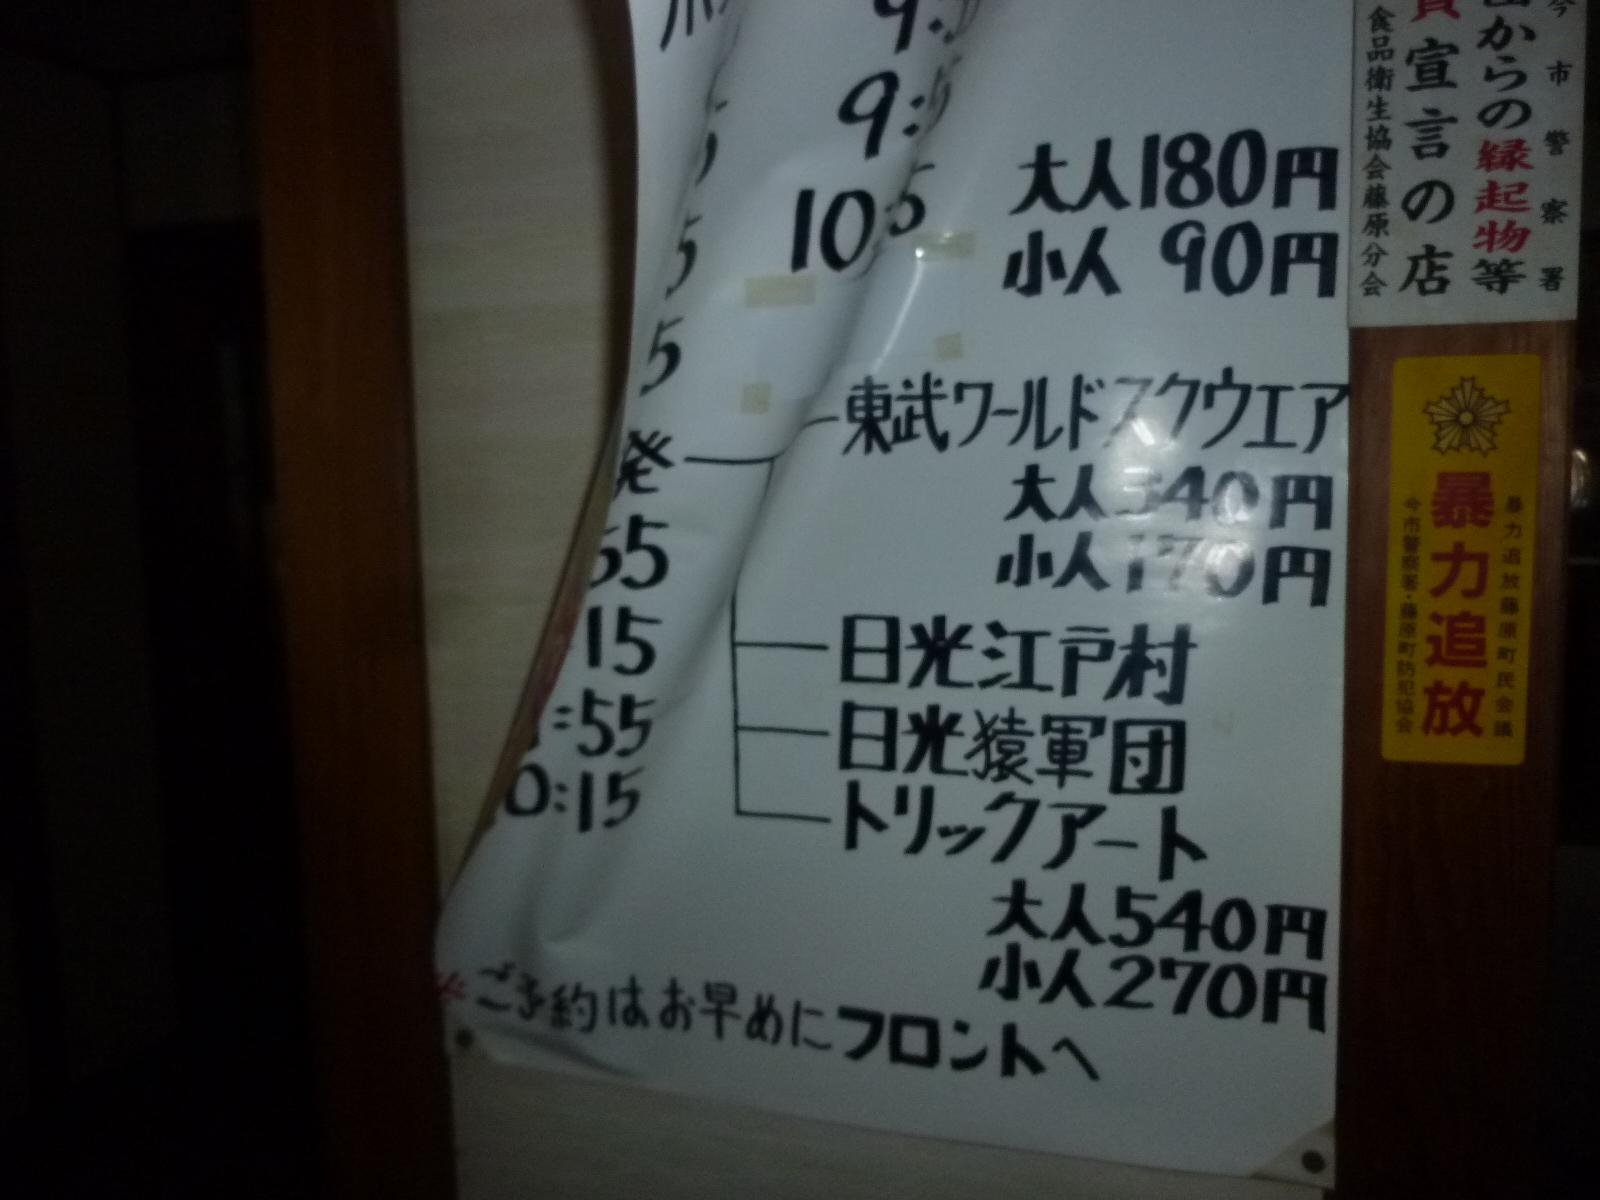 9:
9:
10
5
大人180円
小人 90円
5
5
発
東武ワールドスクウエア
大人340円
小人170円
55
15
:55
0:15
日光江戸村
日光猿軍団
トリックアート
大人540円
小人270円
※ご予約はお早めにフロントへ
今市警察署
からの縁起物等
宣言の店
食品衛生協会藤原分会
暴力追放藤原町民会議
暴力追放
今市警察署・藤原町防犯協会